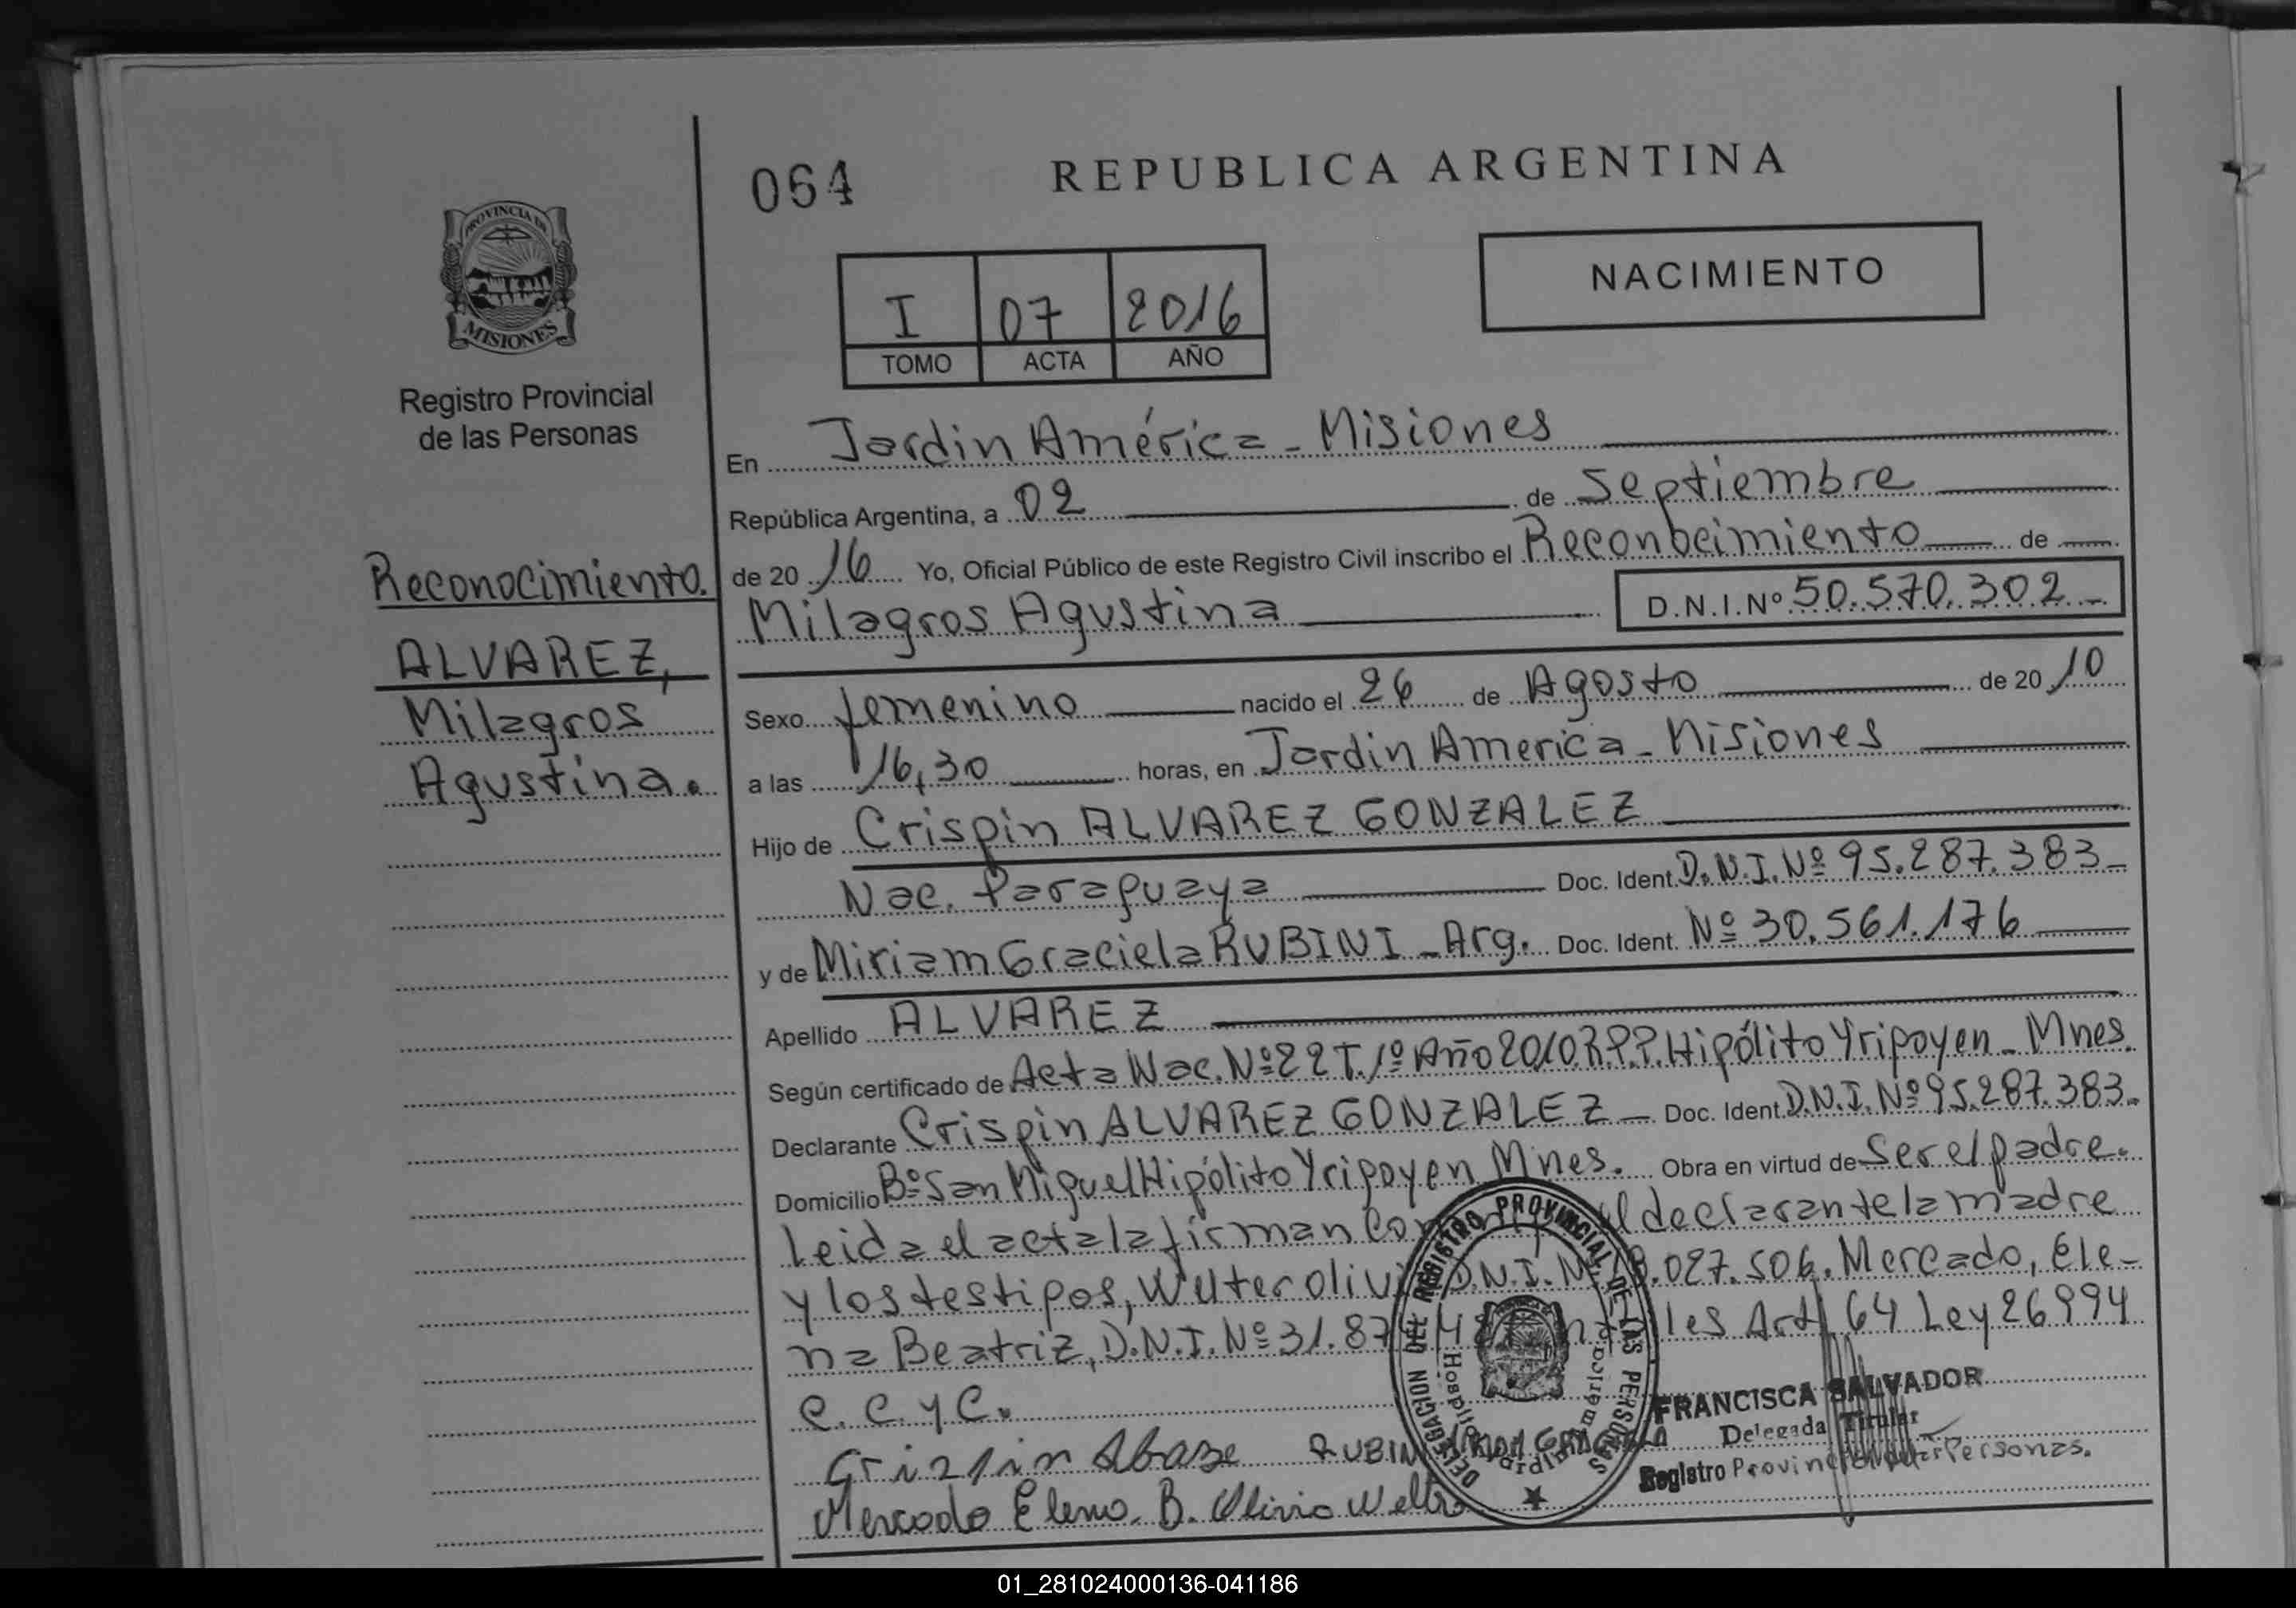 064
REPUBLICA ARGENTINA
PROVINCIA DE
MISIONES
Registro Provincial
de las Personas
NACIMIENTO
I 07 2016
TOMO ACTA AÑO
Reconocimiento.
ALVAREZ,
Milagros
Agustina.
En Jardin América - Misiones
República Argentina, a 02 de Septiembre
de 20 16 Yo, Oficial Público de este Registro Civil inscribo el Reconocimiento de
Milagros Agustina D.N.I.Nº 50.570.302 -
Sexo femenino nacido el 26 de Agosto de 20 10
a las 16,30 horas, en Jardin America - Misiones
Hijo de Crispin ALVAREZ GONZALEZ
Nac. Paraguaya Doc. Ident. D.N.I.Nº 95.287.383 -
y de Miriam Graciela RUBINI - Arg. Doc. Ident. Nº 30.561.176
Apellido ALVAREZ
Según certificado de Acta Nac. Nº 22 T. 1º Año 2010 R.P.P. Hipólito Yrigoyen - Mnes.
Declarante Crispin ALVAREZ GONZALEZ - Doc. Ident. D.N.I. Nº 95.287.383 -
Domicilio Bº San Miguel Hipólito Yrigoyen Mnes. Obra en virtud de Ser el padre.
Leida el acta la firman el declarante la madre
y los testigos, Welter D.N.I. .027.506. Mercado, Ele-
na Beatriz, D.N.I. Nº 31.87 Art 64 Ley 26994
C.C.y C.
RUBINI
Mercado Elena. B. Olivio Welter
DELEGACION DEL REGISTRO PROVINCIAL DE LAS PERSONAS
Hospital Jardin América
FRANCISCA SALVADOR
Delegada Titular
Registro Provincial Personas.
01_281024000136-041186